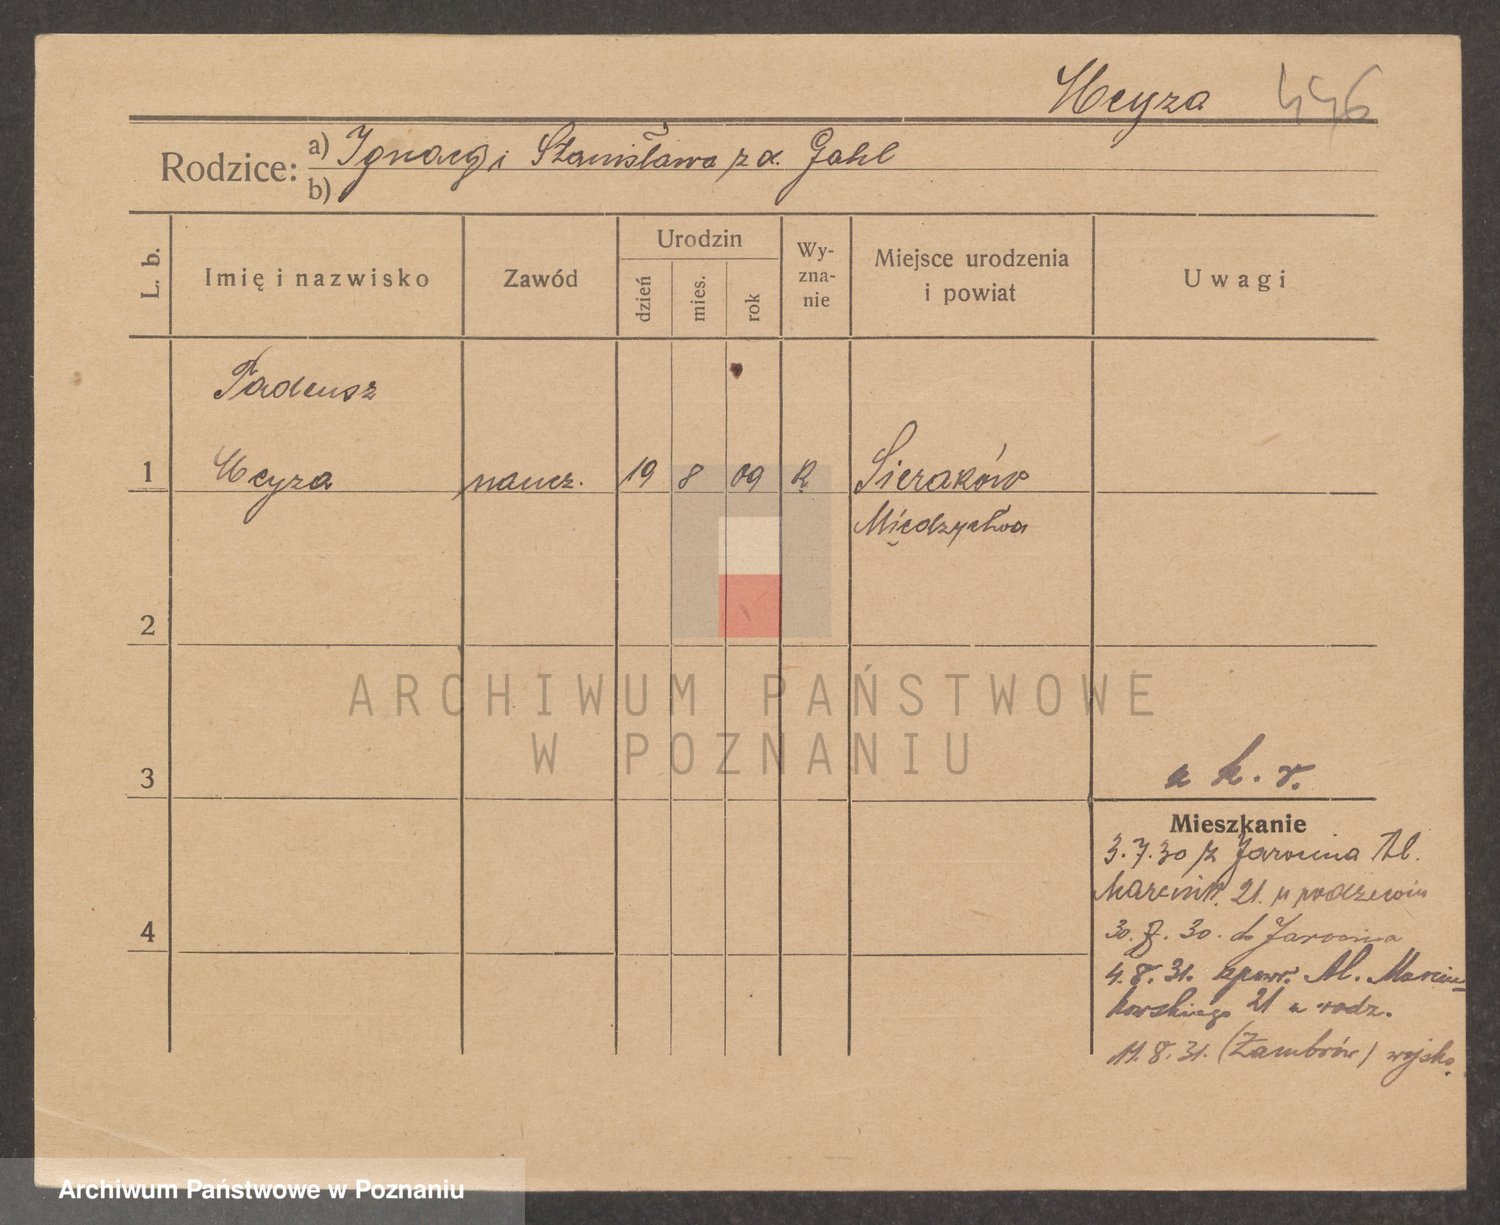 Heyza 446
Rodzice: a) Ignacy i Stanisława z d. Gahl
b)
L. b.
Imię i nazwisko
Zawód
Urodzin
dzień
mies.
rok
Wy-
zna-
nie
Miejsce urodzenia
i powiat
Uwagi
Tadeusz
1 Heyza naucz. 19 8 09 R. Sieraków
Międzychód
2
3
4
a k. r.
Mieszkanie
3.7.30 z Jarocina Al.
Marcink. 21. u rodziców
30. 30. do Jarocina
4.8.31. spowr. Al. Marcin-
kowskiego 21 u rodz.
11.8.31. (Zambrów) wojsko.
ARCHIWUM PAŃSTWOWE
W POZNANIU
Archiwum Państwowe w Poznaniu